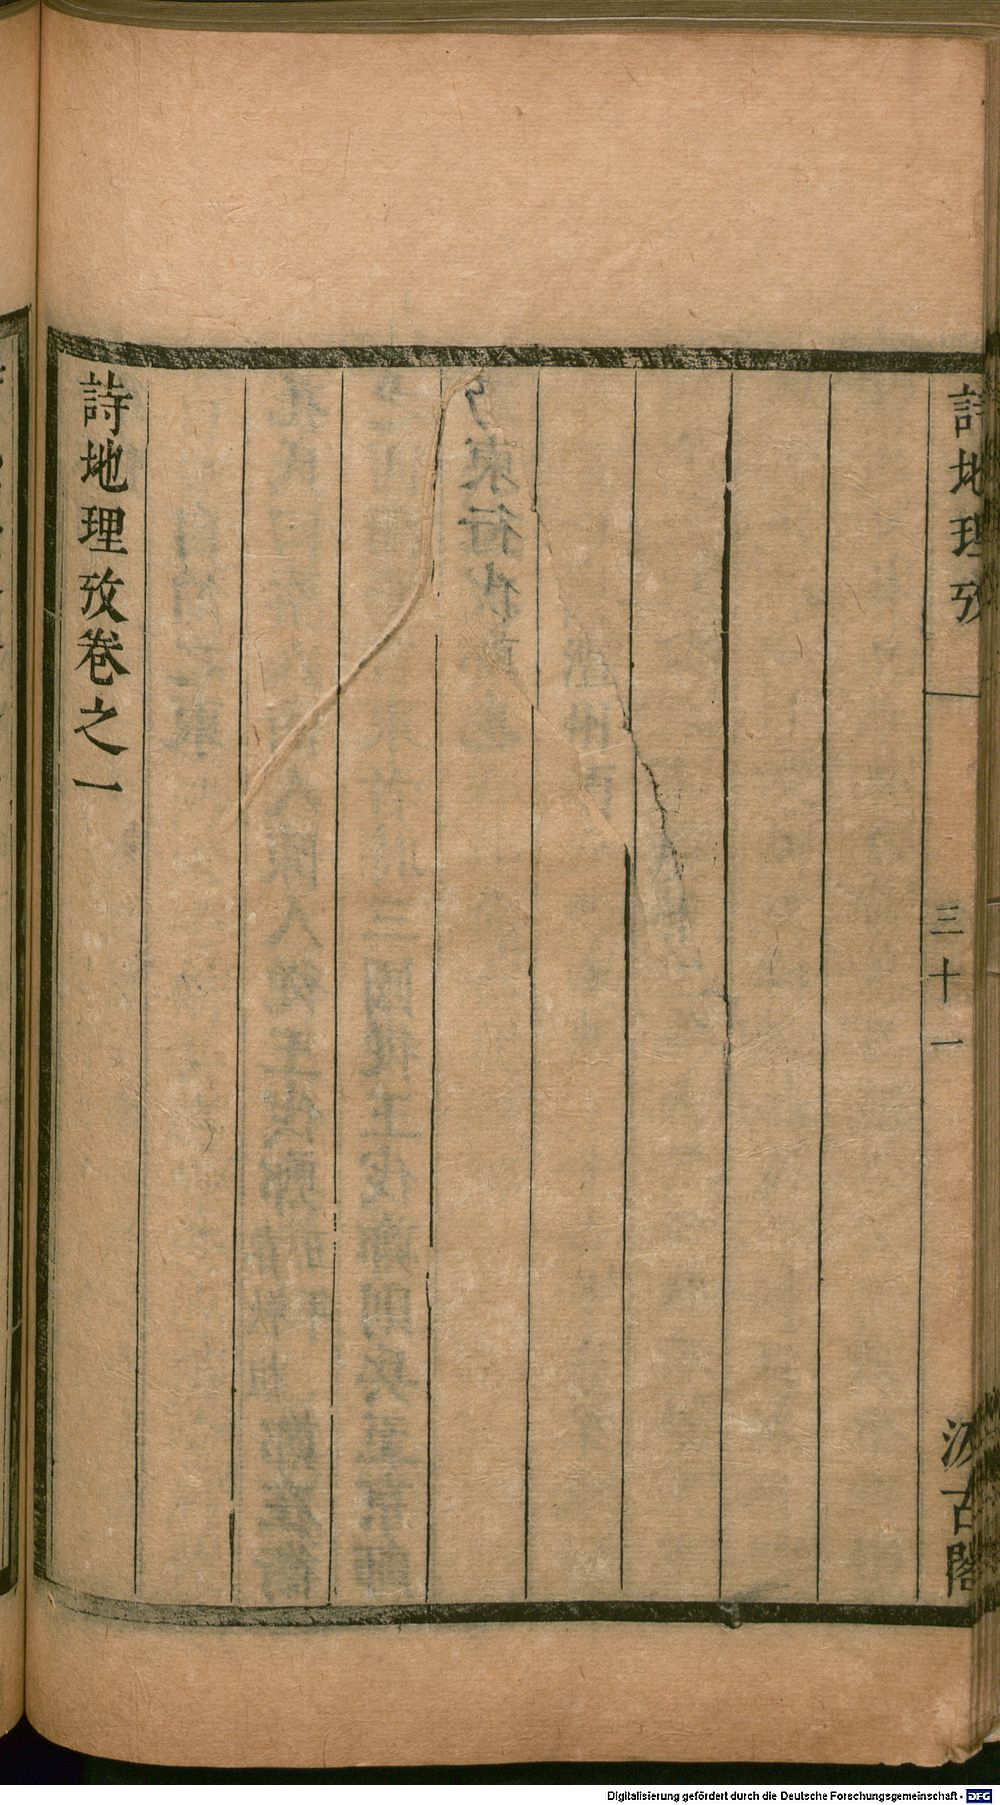 詩地理攷
三十一
汲古閣
詩地理攷卷之一
Digitalisierung gefördert durch die Deutsche Forschungsgemeinschaft - DFG